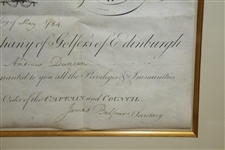 of May 1784
Company of Golfers of Edinburgh
Andrew Duncan
to you all the Privileges & Immunities
Order of the CAPTAIN and COUNCIL
James Balfour Secretary